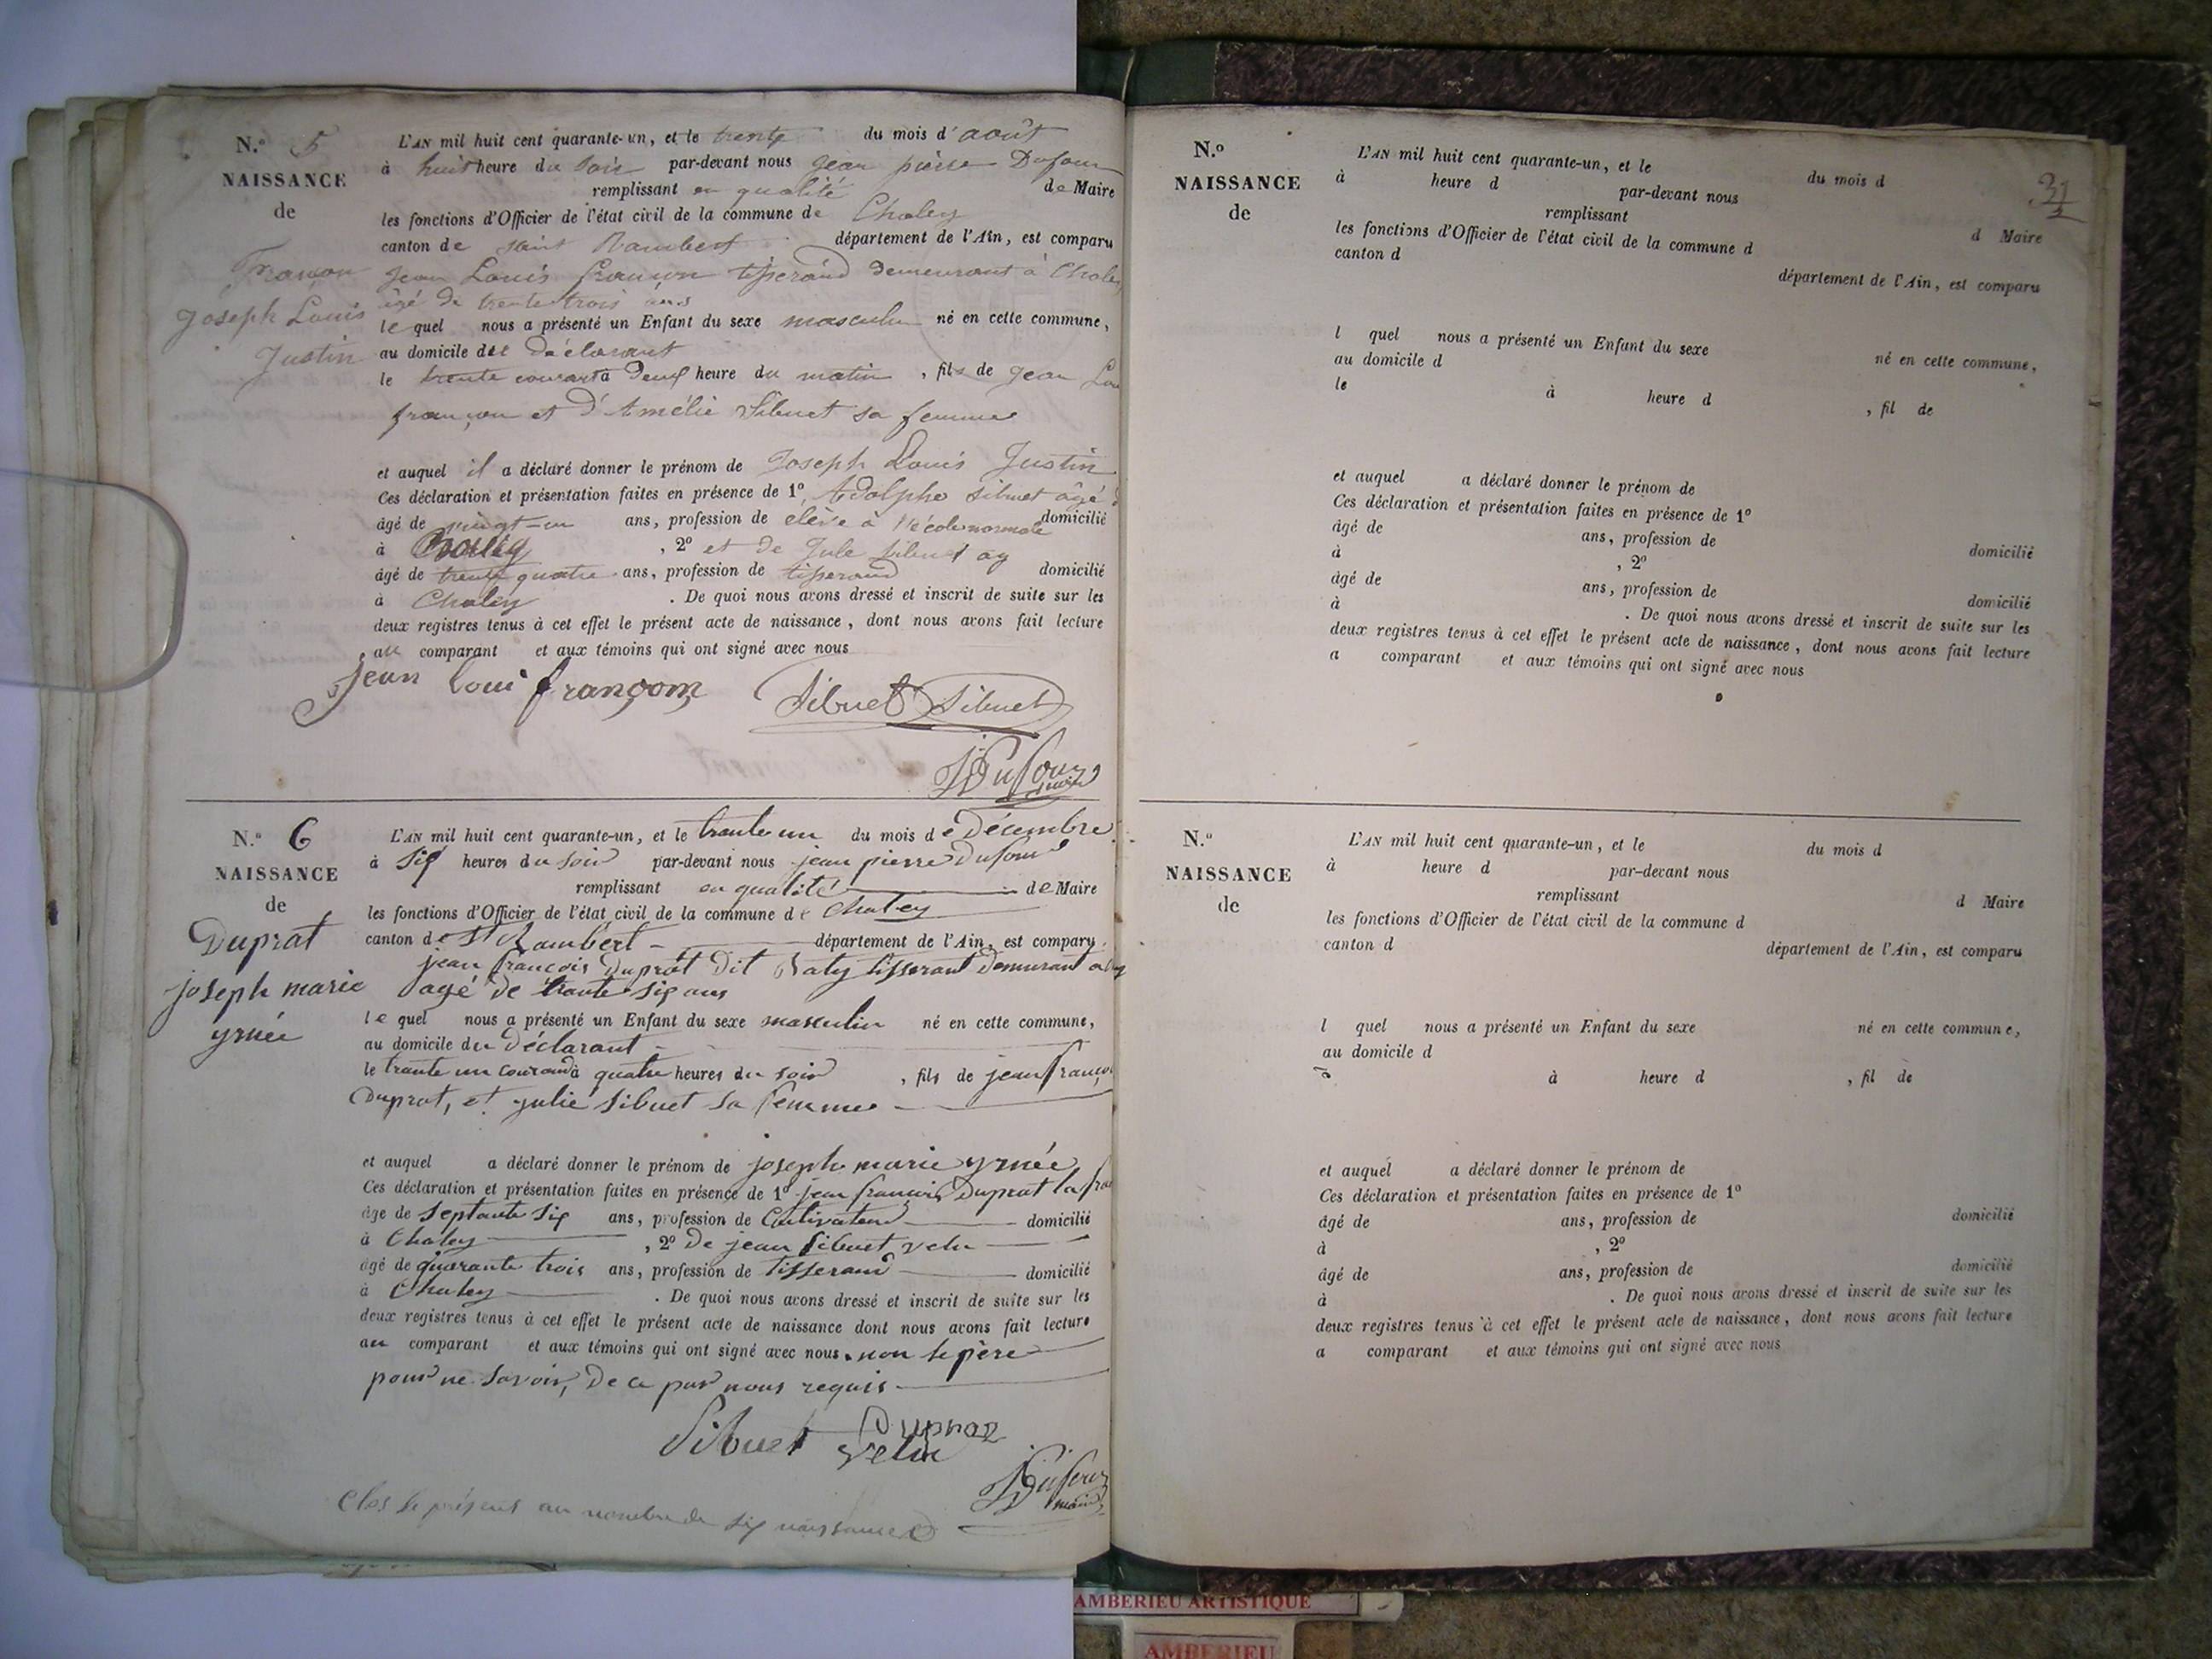 N.o 5
NAISSANCE
de
Françon
Joseph Louis
Justin
L'AN mil huit cent quarante-un, et le trente du mois d'août
à huit heure du soir par-devant nous jean pierre Dufour
remplissant en qualité de Maire
les fonctions d'Officier de l'état civil de la commune de Chaley
canton de saint Rambert département de l'Ain, est comparu
jean Louis françon tisserand demeurant à Chaley
âgé de trente trois ans
le quel nous a présenté un Enfant du sexe masculin né en cette commune,
au domicile del Déclarant
le trente courant à deux heure du matin, fils de jean Lou
françon et d'Amélie Sibuet sa femme
et auquel il a déclaré donner le prénom de Joseph Louis Justin
Ces déclaration et présentation faites en présence de 1o Adolphe sibuet âgé d
âgé de vingt-un ans, profession de élève à l'école normale domicilié
à Chaley, 2o et de Jule sibuet
âgé de trente quatre ans, profession de tisserand domicilié
à Chaley. De quoi nous avons dressé et inscrit de suite sur les
deux registres tenus à cet effet le présent acte de naissance, dont nous avons fait lecture
au comparant et aux témoins qui ont signé avec nous
jean loui françon Sibuet Sibuet
JP Dufour
maire
N.o 6
NAISSANCE
de
Duprat
joseph marie
yrnée
L'AN mil huit cent quarante-un, et le trante un du mois de Décembre
à Six heures du soir par-devant nous jean pierre Dufour
remplissant en qualité de Maire
les fonctions d'Officier de l'état civil de la commune de Chaley
canton de St Rambert département de l'Ain, est comparu
jean françois Duprat Dit Baty tisserant Demurant a
agé De trante six ans
le quel nous a présenté un Enfant du sexe masculin né en cette commune,
au domicile du Déclarant
le trante un courand à quatre heures du soir, fils de jean françoi
Duprat, et julie Sibuet Sa femme
et auquel a déclaré donner le prénom de joseph marie yrnée
Ces déclaration et présentation faites en présence de 1o jean francois Duprat la
âgé de Septante Six ans, profession de Cultivateur domicilié
à Chaley, 2o De jean Sibuet velu
âgé de quarante trois ans, profession de tisserand domicilié
à Chaley. De quoi nous avons dressé et inscrit de suite sur les
deux registres tenus à cet effet le présent acte de naissance dont nous avons fait lecture
au comparant et aux témoins qui ont signé avec nous. non le père
pour ne Savoir, De ce par nous requis
Sibuet Dupraz
velu
JP Dufour
maire
Clos le présent au nombre de six naissances
N.o
NAISSANCE
de
31
L'AN mil huit cent quarante-un, et le du mois d
à heure d par-devant nous
remplissant d Maire
les fonctions d'Officier de l'état civil de la commune d
canton d département de l'Ain, est comparu
l quel nous a présenté un Enfant du sexe né en cette commune,
au domicile d
le à heure d, fil de
et auquel a déclaré donner le prénom de
Ces déclaration et présentation faites en présence de 1o
âgé de ans, profession de domicilié
à, 2o
âgé de ans, profession de domicilié
à. De quoi nous avons dressé et inscrit de suite sur les
deux registres tenus à cet effet le présent acte de naissance, dont nous avons fait lecture
a comparant et aux témoins qui ont signé avec nous
N.o
NAISSANCE
de
L'AN mil huit cent quarante-un, et le du mois d
à heure d par-devant nous
remplissant d Maire
les fonctions d'Officier de l'état civil de la commune d
canton d département de l'Ain, est comparu
l quel nous a présenté un Enfant du sexe né en cette commune,
au domicile d
à heure d, fil de
et auquel a déclaré donner le prénom de
Ces déclaration et présentation faites en présence de 1o
âgé de ans, profession de domicilié
à, 2o
âgé de ans, profession de domicilié
à. De quoi nous avons dressé et inscrit de suite sur les
deux registres tenus à cet effet le présent acte de naissance, dont nous avons fait lecture
a comparant et aux témoins qui ont signé avec nous
AMBERIEU ARTISTIQUE
AMBERIEU